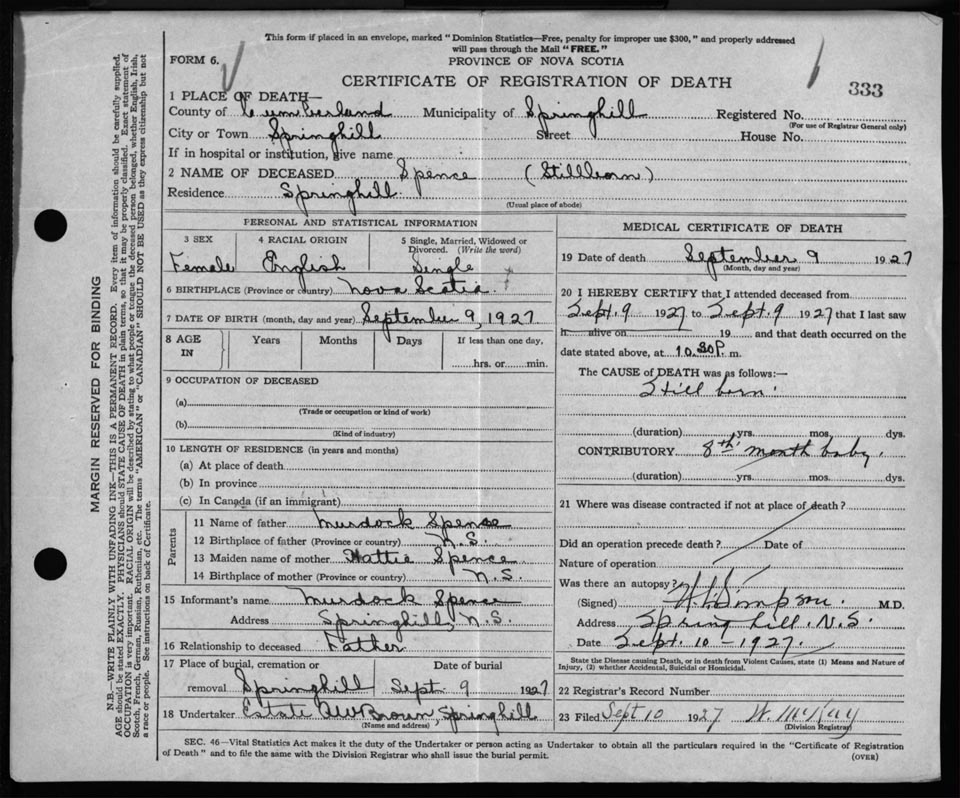 This form if placed in an envelope, marked "Dominion Statistics—Free, penalty for improper use $300," and properly addressed
will pass through the Mail "FREE."
FORM 6.
PROVINCE OF NOVA SCOTIA
CERTIFICATE OF REGISTRATION OF DEATH
333
1 PLACE OF DEATH—
County of Cumberland Municipality of Springhill Registered No.
(For use of Registrar General only)
City or Town Springhill Street House No.
If in hospital or institution, give name
2 NAME OF DECEASED Spence (Stillborn)
Residence Springhill
(Usual place of abode)
PERSONAL AND STATISTICAL INFORMATION
3 SEX 4 RACIAL ORIGIN 5 Single, Married, Widowed or
Divorced. (Write the word)
Female English Single
6 BIRTHPLACE (Province or country) Nova Scotia
7 DATE OF BIRTH (month, day and year) September 9, 1927
8 AGE IN Years Months Days If less than one day,
hrs. or min.
9 OCCUPATION OF DECEASED
(a)
(Trade or occupation or kind of work)
(b)
(Kind of industry)
10 LENGTH OF RESIDENCE (in years and months)
(a) At place of death
(b) In province
(c) In Canada (if an immigrant)
Parents
11 Name of father Murdock Spence
12 Birthplace of father (Province or country) N.S.
13 Maiden name of mother Hattie Spence
14 Birthplace of mother (Province or country) N.S.
15 Informant's name Murdock Spence
Address Springhill, N.S.
16 Relationship to deceased Father
17 Place of burial, cremation or Date of burial
removal Springhill Sept. 9 1927
18 Undertaker Estate AW Brown, Springhill
(Name and address)
MEDICAL CERTIFICATE OF DEATH
19 Date of death September 9 1927
(Month, day and year)
20 I HEREBY CERTIFY that I attended deceased from
Sept. 9 1927 to Sept. 9 1927 that I last saw
h alive on 19 and that death occurred on the
date stated above, at 10.30P. m.
The CAUSE of DEATH was as follows:—
Still born.
(duration) yrs. mos. dys.
CONTRIBUTORY 8th month baby.
(duration) yrs. mos. dys.
21 Where was disease contracted if not at place of death?
Did an operation precede death? Date of
Nature of operation
Was there an autopsy?
(Signed) Simpson. M.D.
Address Spring hill. N.S.
Date Sept. 10 - 1927.
State the Disease causing Death, or in death from Violent Causes, state (1) Means and Nature of
Injury, (2) whether Accidental, Suicidal or Homicidal.
22 Registrar's Record Number
23 Filed Sept 10 1927 W. McKay
(Division Registrar)
SEC. 46—Vital Statistics Act makes it the duty of the Undertaker or person acting as Undertaker to obtain all the particulars required in the "Certificate of Registration
of Death" and to file the same with the Division Registrar who shall issue the burial permit.
(OVER)
MARGIN RESERVED FOR BINDING
N.B—WRITE PLAINLY WITH UNFADING INK—THIS IS A PERMANENT RECORD. Every item of information should be carefully supplied.
AGE should be stated EXACTLY. PHYSICIANS should STATE CAUSE OF DEATH in plain terms, so that it may be properly classified. Exact statement of
OCCUPATION is very important. RACIAL ORIGIN will be described by stating to what people or tongue the deceased person belonged, whether English, Irish,
Scotch, French, German, Russian, Ruthenian, etc. The terms "AMERICAN" or "CANADIAN" SHOULD NOT BE USED as they express citizenship but not
a race or people. See instructions on back of Certificate.